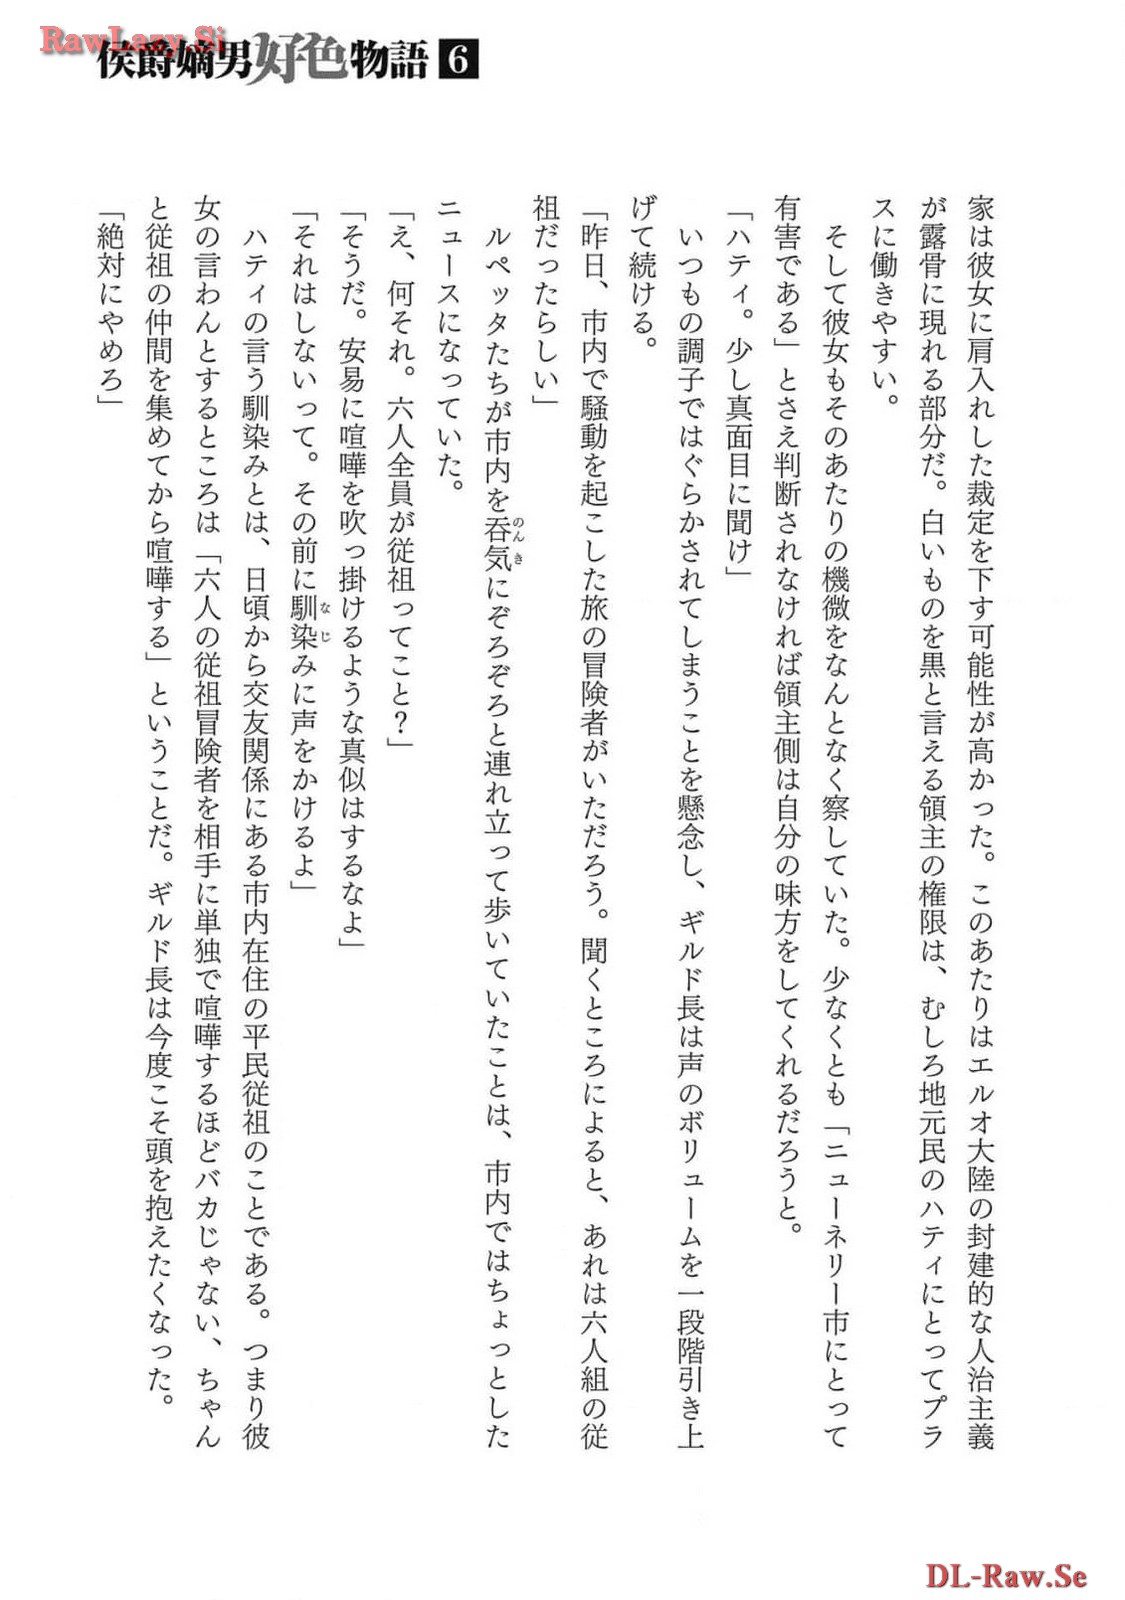 RawLazy.Si
侯爵嫡男好色物語 6
家は彼女に肩入れした裁定を下す可能性が高かった。このあたりはエルオ大陸の封建的な人治主義
が露骨に現れる部分だ。白いものを黒と言える領主の権限は、むしろ地元民のハティにとってプラ
スに働きやすい。
そして彼女もそのあたりの機微をなんとなく察していた。少なくとも「ニューネリー市にとって
有害である」とさえ判断されなければ領主側は自分の味方をしてくれるだろうと。
「ハティ。少し真面目に聞け」
いつもの調子ではぐらかされてしまうことを懸念し、ギルド長は声のボリュームを一段階引き上
げて続ける。
「昨日、市内で騒動を起こした旅の冒険者がいただろう。聞くところによると、あれは六人組の従
祖だったらしい」
ルペッタたちが市内を呑気にぞろぞろと連れ立って歩いていたことは、市内ではちょっとした
のんき
ニュースになっていた。
「え、何それ。六人全員が従祖ってこと？」
「そうだ。安易に喧嘩を吹っ掛けるような真似はするなよ」
「それはしないって。その前に馴染みに声をかけるよ」
なじ
ハティの言う馴染みとは、日頃から交友関係にある市内在住の平民従祖のことである。つまり彼
女の言わんとするところは「六人の従祖冒険者を相手に単独で喧嘩するほどバカじゃない、ちゃん
と従祖の仲間を集めてから喧嘩する」ということだ。ギルド長は今度こそ頭を抱えたくなった。
「絶対にやめろ」
DL-Raw.Se